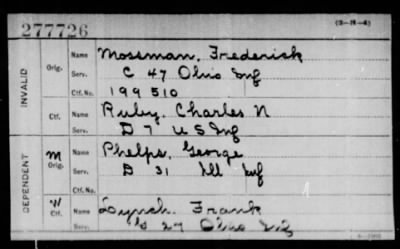 277726
(3-H-4)
INVALID
Orig.
Name Mossman, Frederick
Serv. C 47 Ohio Inf
Ctf. No. 199510
Ctf.
Name Ruby, Charles N
Serv. D 7 U S Inf
DEPENDENT
M
Orig.
Name Phelps, George
Serv. D 31 Ill Inf
Ctf. No.
W
Ctf.
Name Lynch, Frank
Serv. 27 Ohio Inf